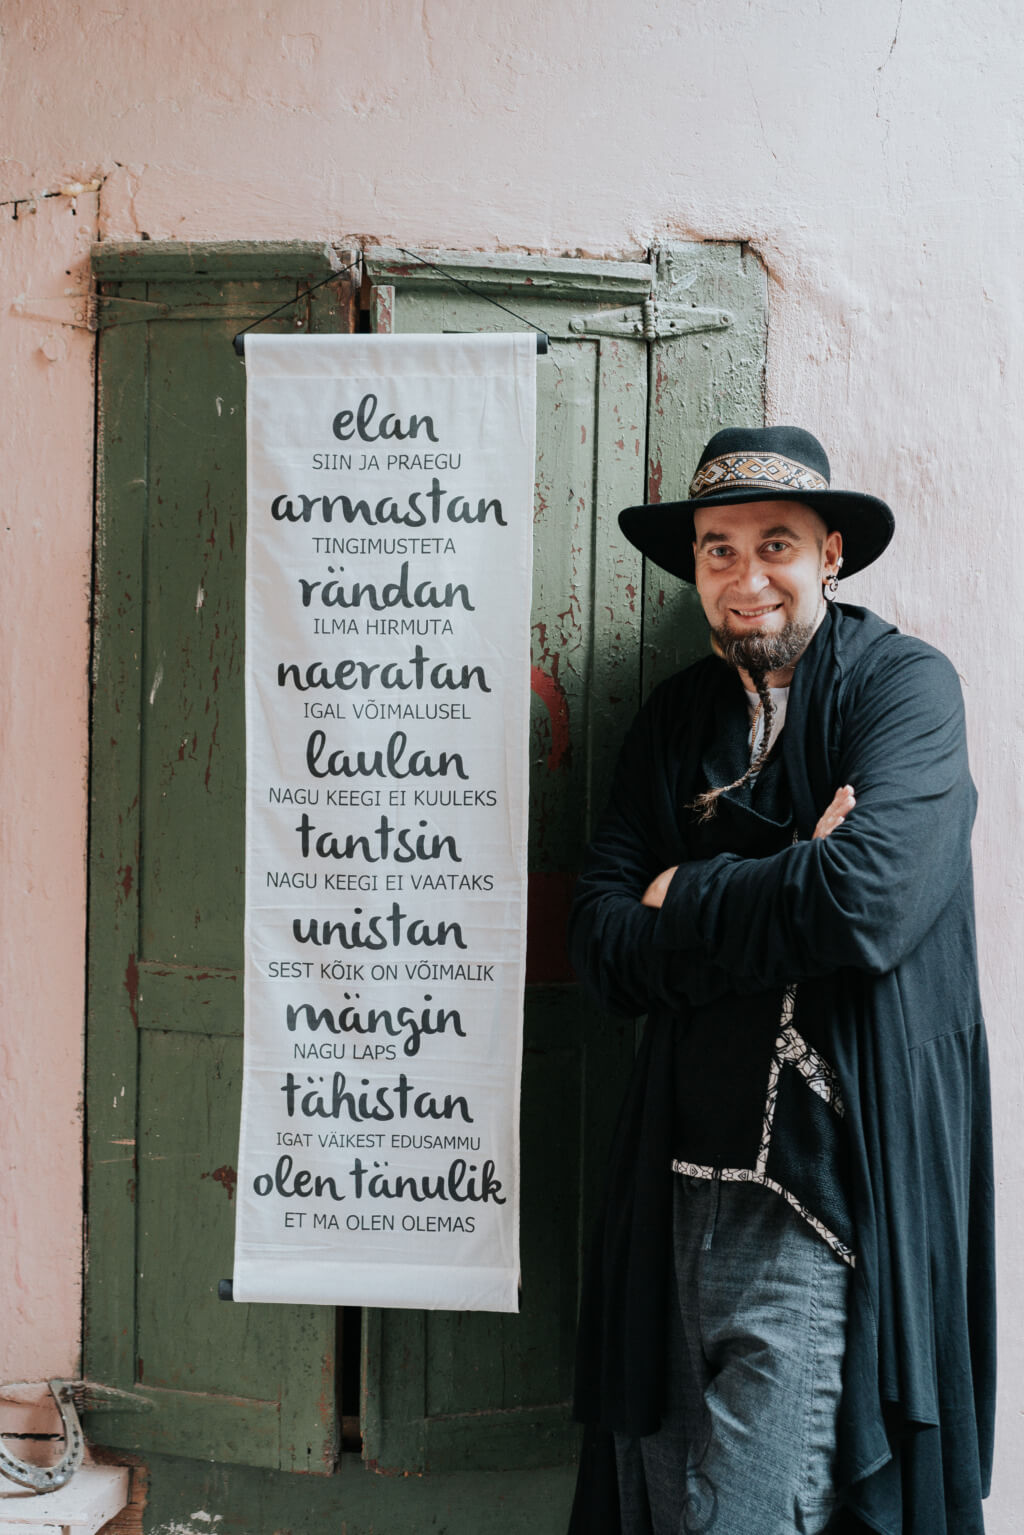 elan
SIIN JA PRAEGU
armastan
TINGIMUSTETA
rändan
ILMA HIRMUTA
naeratan
IGAL VÕIMALUSEL
laulan
NAGU KEEGI EI KUULEKS
tantsin
NAGU KEEGI EI VAATAKS
unistan
SEST KÕIK ON VÕIMALIK
mängin
NAGU LAPS
tähistan
IGAT VÄIKEST EDUSAMMU
olen tänulik
ET MA OLEN OLEMAS